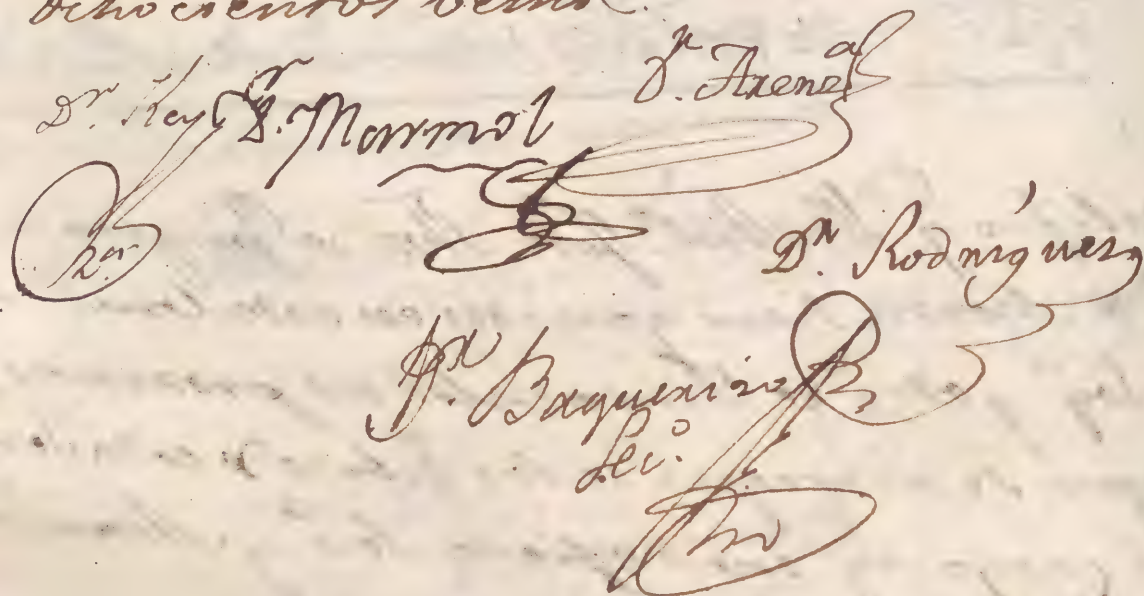 ochocientos veinte.
Dr. Rey Dr. Marmol Dr. Arenas
Dr. Rodriguez
Dr. Baquerizo
Sec.o